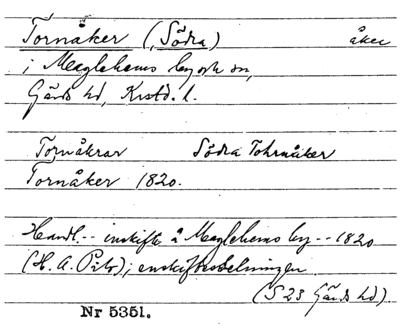 Tornåker (Södra) åker
i Maglehems by och sn,
Gärds hd, Krstd. l.
Tornåkrar Södra Tohrnåker
Tornåker 1820.
Handl. -- enskifte å Maglehems by -- 1820
(H. A. ); enskiftesdelningen
(S 23 Gärds hd)
Nr 5351.